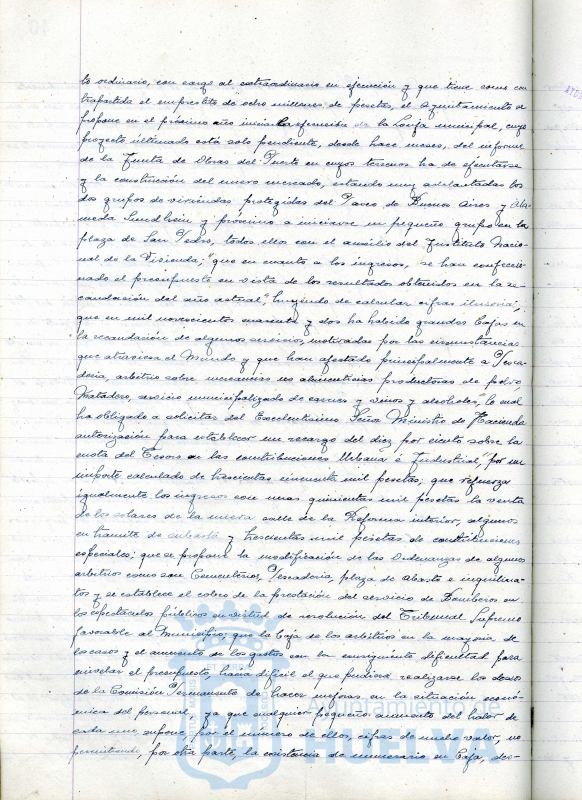 to ordinario, con cargo al extraordinario en ejecución y que tiene como con
trapartida el empréstito de ocho millones de pesetas, el Ayuntamiento se
propone en el próximo año iniciar la de la Lonja municipal, cuyo
proyecto ultimado está solo pendiente, desde hace meses, del informe
de la Junta de Obras del Puerto en cuyos terrenos ha de ejecutarse
y la construcción del nuevo mercado, estando muy adelantadas los
dos grupos de viviendas protegidas del Paseo de Buenos Aires y Ala-
meda Sundheim y próximo a iniciarse un pequeño grupo en la
plaza de San Pedro, todos ellos con el auxilio del Instituto Nacio-
nal de la Vivienda; "que en cuanto a los ingresos, se han confeccio-
nado el presupuesto en vista de los resultados obtenidos en la re-
caudación del año actual," huyendo de calcular cifras ilusorias;
que en mil novecientos cuarenta y dos ha habido grandes bajas en
la recaudación de algunos servicios, motivadas por las circunstancias
que atraviesa el Mundo y que han afectado principalmente a Pesca-
dería, arbitrio sobre mercancías no alimenticias productoras de polvo
Matadero, servicio municipalizado de carnes y vinos y alcoholes," lo cual
ha obligado a solicitar del Excelentísimo Señor Ministro de Hacienda
autorización para establecer un recargo del diez por ciento sobre la
cuota del Tesoro en las contribuciones Urbana é Industrial," por un
importe calculado de trescientas cincuenta mil pesetas; que refuerza
igualmente los ingresos con unas quinientas mil pesetas la venta
de los solares de la nueva calle de la Reforma interior, algunos
en trámite de subasta y trescientas mil pesetas de contribuciones
especiales; que se propone la modificación de las Ordenanzas de algunos
arbitrios como son Cementerios, Pescadería, plaza de abasto e inquilina-
tos y se establece el cobro de la prestación del servicio de Bomberos en
los espectáculos públicos en virtud de resolución del Tribunal Supremo
favorable al Municipio; que la baja de los arbitrios en la mayoría de
los casos y el aumento de los gastos con la consiguiente dificultad para
nivelar el presupuesto, hacía difícil el que pudiera realizarse los deseos
de la Comisión Permanente de hacer mejoras en la situación econó-
mica del personal ya que cualquier pequeño aumento del haber de
cada uno, supone, por el número de ellos, cifras de mucho valor, no
permitiendo, por otra parte, la existencia de numerario en Caja, des-
Ayuntamiento de
HUELVA